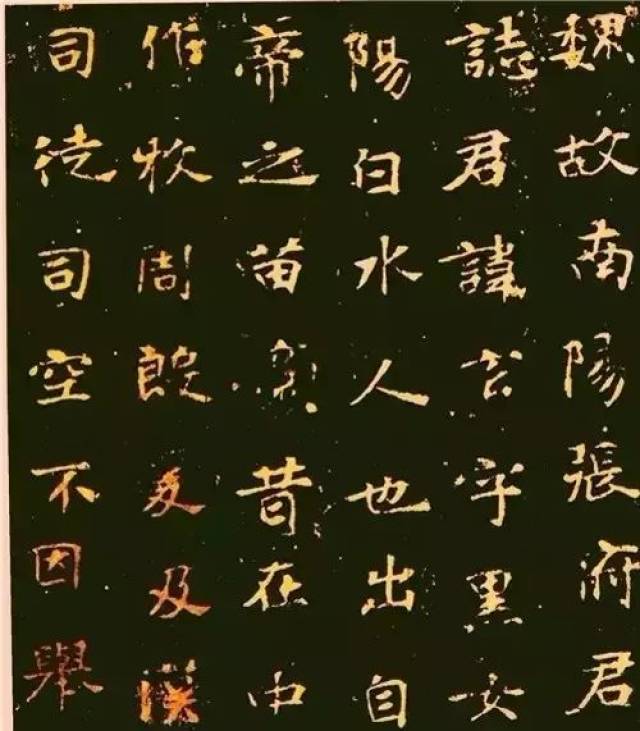 魏故南陽張府君
誌君諱玄字黑女
陽白水人也出自
帝之苗裔昔在中
作牧周殷爰及漢
司徒司空不因舉